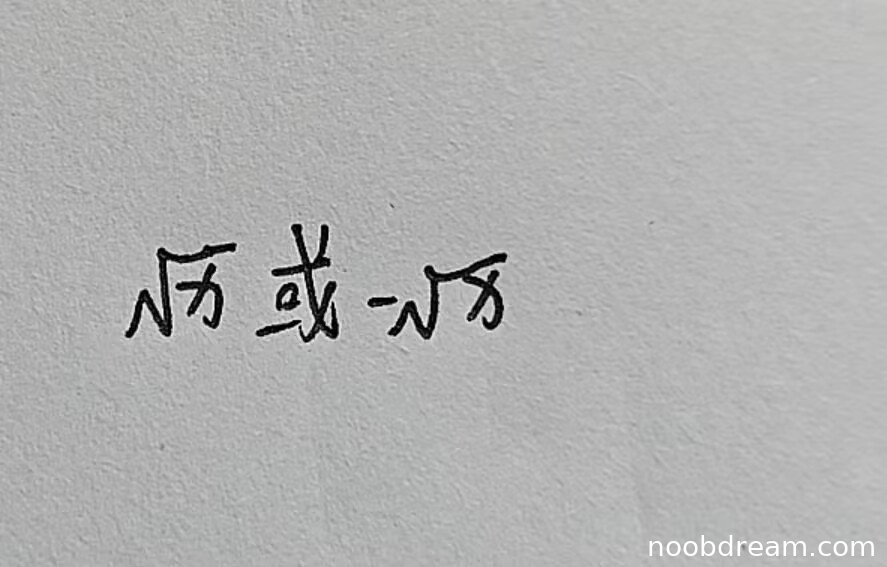 √x 或 -√x
noobdream.com